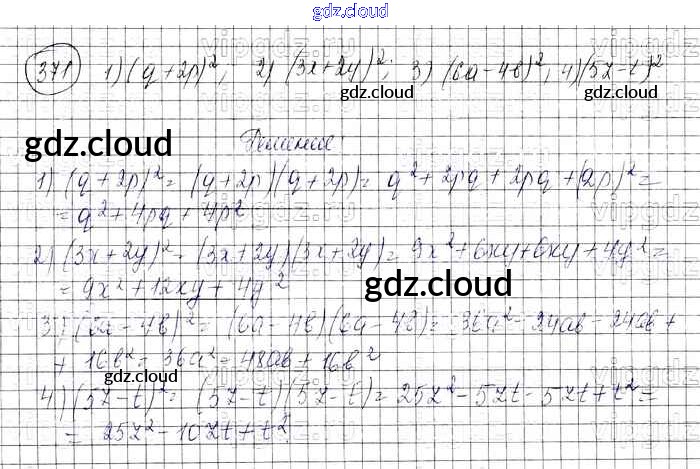 gdz.cloud
vipgdz.ru
371 1) (q+2p)², 2) (3x+2y)², 3) (6a-4b)², 4) (5z-t)²
gdz.cloud gdz.cloud
gdz.cloud Решение:
1) (q+2p)² = (q+2p)(q+2p) = q²+2pq+2pq+(2p)² =
= q²+4pq+4p²
2) (3x+2y)² = (3x+2y)(3x+2y) = 9x²+6xy+6xy+4y² =
= 9x²+12xy+4y²
gdz.cloud
3) (6a-4b)² = (6a-4b)(6a-4b) = 36a²-24ab-24ab+
+16b² = 36a² = 48ab+16b²
gdz.cloud
4) (5z-t)² = (5z-t)(5z-t) = 25z²-5zt-5zt+t² =
= 25z²-10zt+t²
gdz.cloud